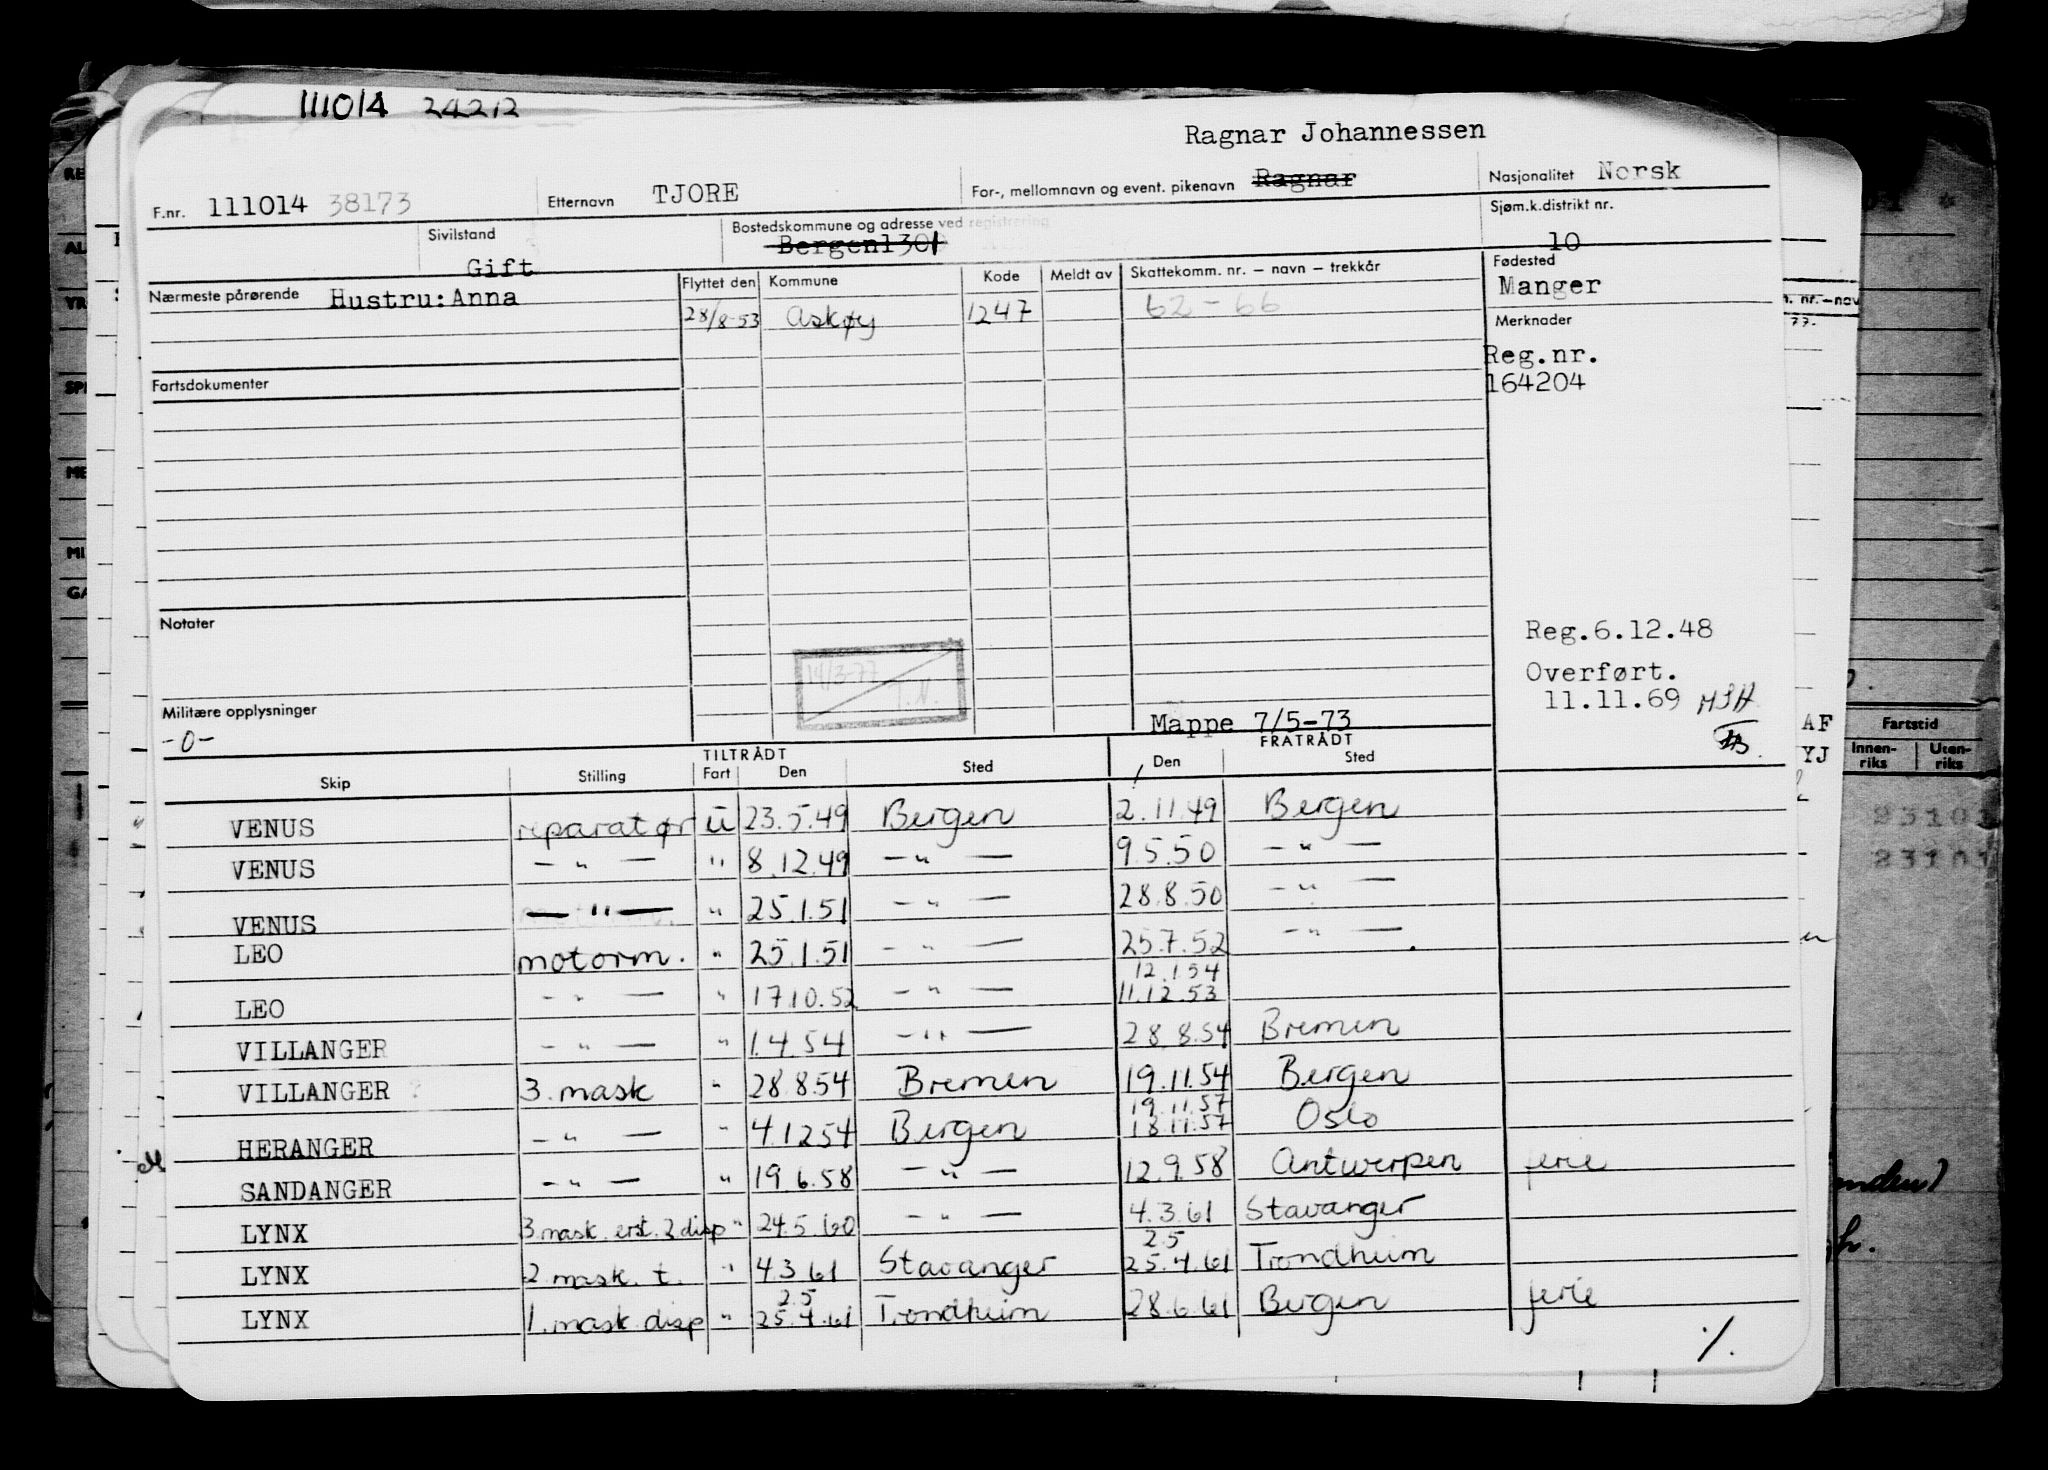 111014 24212
Ragnar Johannessen
F.nr. 111014 38173 Etternavn TJORE For-, mellomnavn og event. pikenavn Ragnar Nasjonalitet Norsk
Sivilstand Gift Bostedskommune og adresse ved registrering Bergen1301 Sjøm.k.distrikt nr. 10
Nærmeste pårørende Hustru: Anna Flyttet den Kommune Kode Meldt av Skattekomm. nr. – navn – trekkår Fødested Manger
28/8-53 Askøy 1247 62-66
Merknader
Reg.nr.
164204
Fartsdokumenter
Notater
Reg.6.12.48
Overført.
11.11.69
14/3-77
T.N.
Militære opplysninger
-0-
Mappe 7/5-73
TILTRÅDT FRATRÅDT
Skip Stilling Fart Den Sted Den Sted
VENUS reparatør U 23.5.49 Bergen 2.11.49 Bergen
VENUS — " — " 8.12.49 — " — 9.5.50 — " —
VENUS — " — " 25.1.51 — " — 28.8.50 — " —
LEO motorm. " 25.1.51 — " — 25.7.52 — " —
12.1.54
LEO — " — " 17.10.52 — " — 11.12.53
VILLANGER — " — " 1.4.54 — " — 28.8.54 Bremen
VILLANGER 3. mask " 28.8.54 Bremen 19.11.54 Bergen
19.11.57
HERANGER — " — " 4.12 54 Bergen 18.11.57 Oslo
SANDANGER — " — " 19.6.58 — " — 12.9.58 Antwerpen ferie
LYNX 3 mask. erst. 2 disp " 24.5.60 — " — 4.3.61 Stavanger
2.5
LYNX 2 mask. t. " 4.3 61 Stavanger 25.4.61 Trondheim
2.5
LYNX 1. mask disp " 25.4.61 Trondheim 28.6.61 Bergen ferie
%.
AF
YJ
Fartstid
Innen-riks Uten-riks
23101
23101